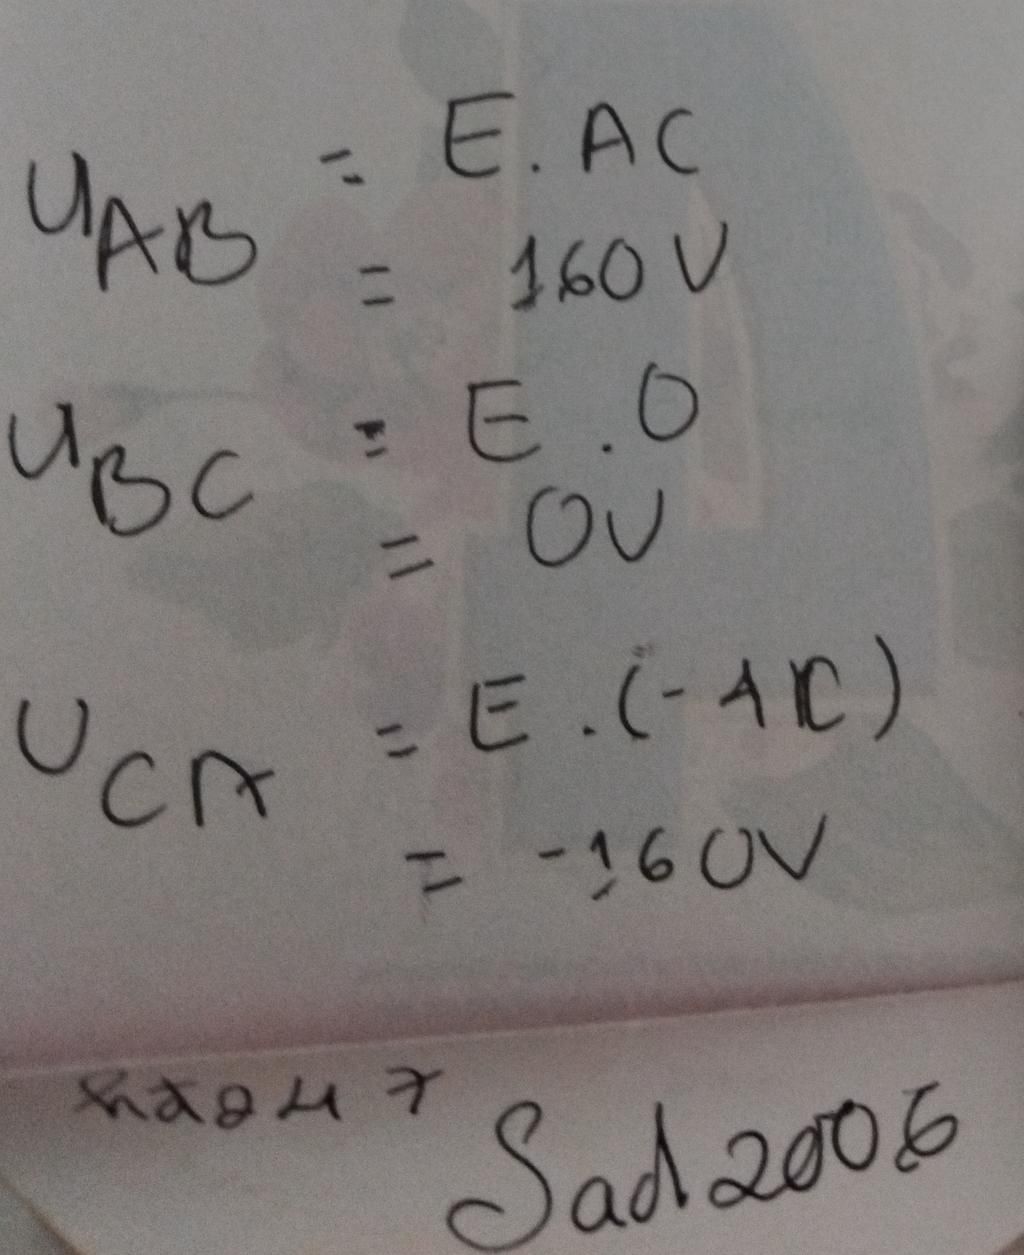 U_AB = E. AC
= 160 V
U_BC = E . 0
= 0V
U_CA = E . (- AC)
= -160V
Sad 2006